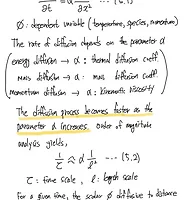 dt = α ∂x² ... (5.1)
∅: dependent variable (temperature, species, momentum)
The rate of diffusion depends on the parameter α
(energy diffusion → α : thermal diffusion coeff.
mass diffusion → α : mass diffusion coeff.
momentum diffusion → α : kinematic viscosity)
The diffusion process becomes faster as the
parameter α increases. Order of magnitude
analysis yields,
1/τ ≈ α 1/l² ... (5.2)
τ : time scale, l : length scale
For a given time, the scalar ∅ diffusive to distance